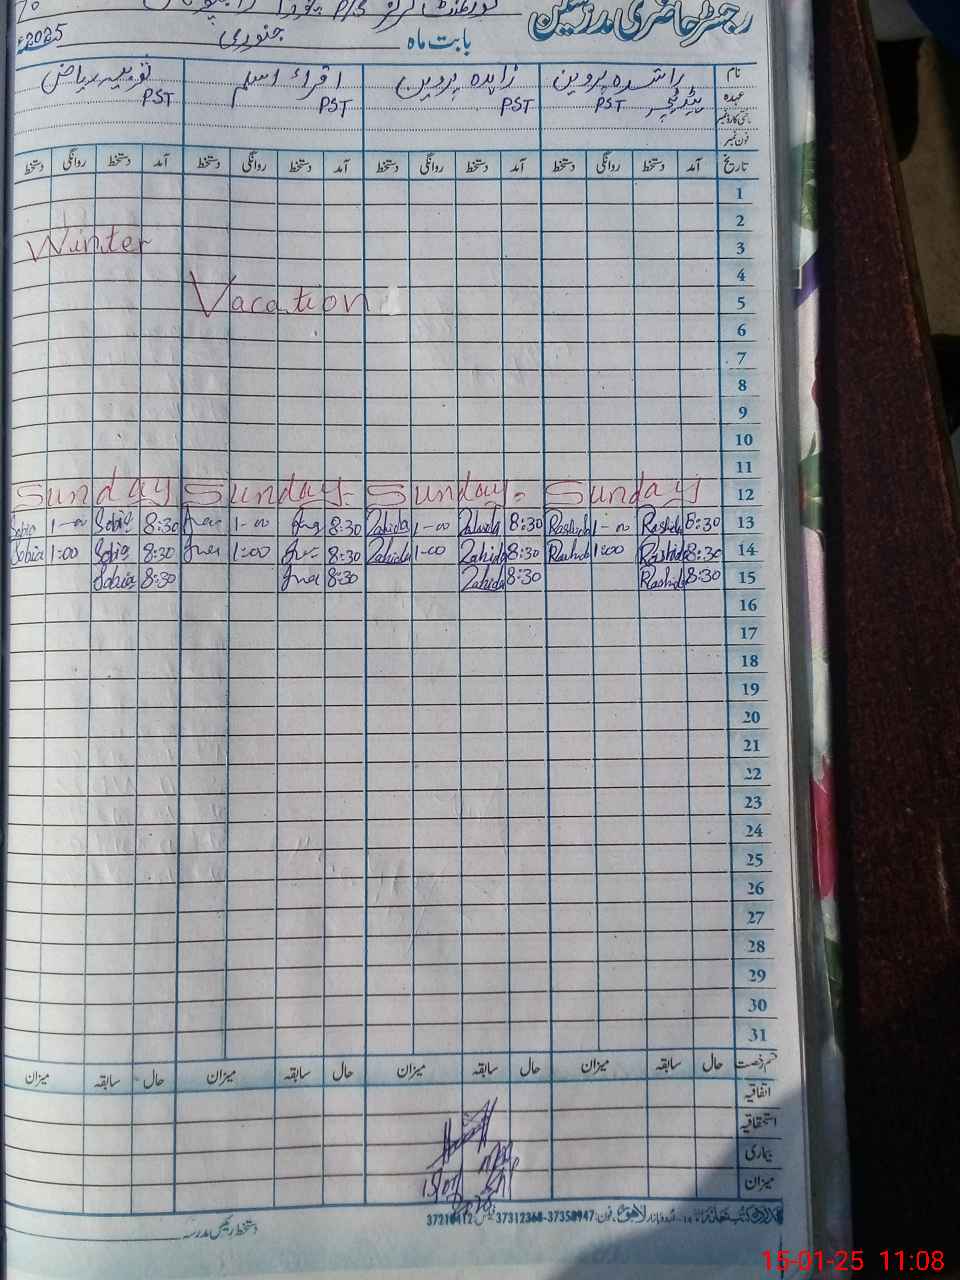 رجسٹر حاضری مدرسین
بابت ماہ جنوری 2025ء
نام راشدہ پروین زاہدہ پروین اقراء اسلم ثوبیہ ریاض
عہدہ ہیڈ ٹیچر PST PST PST PST
فون نمبر
تاریخ آمد دستخط روانگی دستخط آمد دستخط روانگی دستخط آمد دستخط روانگی دستخط آمد دستخط روانگی دستخط
1
2
Winter 3
4
Vacation 5
6
7
8
9
10
11
Sunday Sunday Sunday Sunday 12
Sobia 1-00 Sobia 8:30 1-00 8:30 Zahida 1-00 Zahida 8:30 Rashida 1-00 Rashida 8:30 13
Sobia 1:00 Sobia 8:30 1:00 8:30 Zahida 1-00 Zahida 8:30 Rashida 1:00 Rashida 8:30 14
Sobia 8:30 8:30 Zahida 8:30 Rashida 8:30 15
16
17
18
19
20
21
22
23
24
25
26
27
28
29
30
31
قسم رخصت حال سابقہ میزان حال سابقہ میزان حال سابقہ میزان حال سابقہ میزان
اتفاقیہ
استحقاقیہ
بیماری
میزان
لاہور فون: 37350947-37312368 فیکس: 37210412
دستخط رئیس مدرسہ
15-01-25 11:08